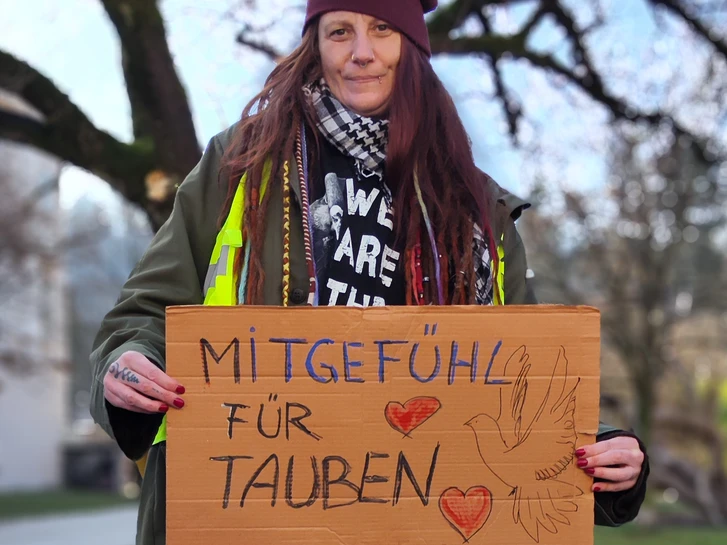 WE
ARE
MITGEFÜHL
FÜR
TAUBEN